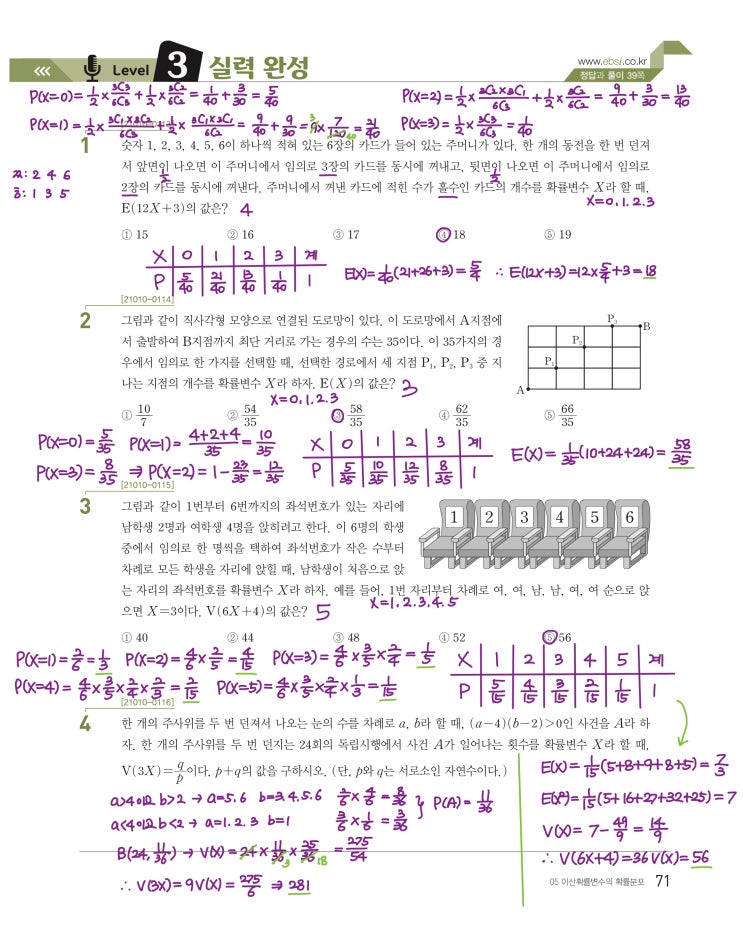 Level 3 실력 완성
www.ebsi.co.kr
정답과 풀이 39쪽
P(X=0)=1/2×3C3/6C3+1/2×3C2/6C2=1/40+3/30=5/40
P(X=2)=1/2×3C2×3C1/6C3+1/2×3C2/6C2=9/40+3/30=13/40
P(X=1)=1/2×3C1×3C2/6C3+1/2×3C1×3C1/6C2=9/40+9/30=21/40
P(X=3)=1/2×3C3/6C3=1/40
1 숫자 1, 2, 3, 4, 5, 6이 하나씩 적혀 있는 6장의 카드가 들어 있는 주머니가 있다. 한 개의 동전을 한 번 던져
서 앞면이 나오면 이 주머니에서 임의로 3장의 카드를 동시에 꺼내고, 뒷면이 나오면 이 주머니에서 임의로
2장의 카드를 동시에 꺼낸다. 주머니에서 꺼낸 카드에 적힌 수가 홀수인 카드의 개수를 확률변수 X라 할 때,
E(12X+3)의 값은? 4
짝: 2 4 6
홀: 1 3 5
1/2
1/2
X=0.1.2.3
① 15 ② 16 ③ 17 ④ 18 ⑤ 19
X 0 1 2 3 계
P 5/40 21/40 13/40 1/40 1
E(X)=1/40(21+26+3)=5/4 ∴ E(12X+3)=12×5/4+3=18
[21010-0114]
2 그림과 같이 직사각형 모양으로 연결된 도로망이 있다. 이 도로망에서 A지점에
서 출발하여 B지점까지 최단 거리로 가는 경우의 수는 35이다. 이 35가지의 경
우에서 임의로 한 가지를 선택할 때, 선택한 경로에서 세 지점 P₁, P₂, P₃ 중 지
나는 지점의 개수를 확률변수 X라 하자. E(X)의 값은? 3
X=0.1.2.3
P₃ B
P₂
P₁
A
① 10/7 ② 54/35 ③ 58/35 ④ 62/35 ⑤ 66/35
P(X=0)=5/35 P(X=1)=4+2+4/35=10/35
P(X=3)=8/35 ⇒ P(X=2)=1-23/35=12/35
X 0 1 2 3 계
P 5/35 10/35 12/35 8/35 1
E(X)=1/35(10+24+24)=58/35
[21010-0115]
3 그림과 같이 1번부터 6번까지의 좌석번호가 있는 자리에
남학생 2명과 여학생 4명을 앉히려고 한다. 이 6명의 학생
중에서 임의로 한 명씩을 택하여 좌석번호가 작은 수부터
차례로 모든 학생을 자리에 앉힐 때, 남학생이 처음으로 앉
는 자리의 좌석번호를 확률변수 X라 하자. 예를 들어, 1번 자리부터 차례로 여, 여, 남, 남, 여, 여 순으로 앉
으면 X=3이다. V(6X+4)의 값은? 5
1 2 3 4 5 6
X=1.2.3.4.5
① 40 ② 44 ③ 48 ④ 52 ⑤ 56
P(X=1)=2/6=1/3 P(X=2)=4/6×2/5=4/15 P(X=3)=4/6×3/5×2/4=1/5
P(X=4)=4/6×3/5×2/4×2/3=2/15 P(X=5)=4/6×3/5×2/4×1/3=1/15
X 1 2 3 4 5 계
P 5/15 4/15 3/15 2/15 1/15 1
[21010-0116]
4 한 개의 주사위를 두 번 던져서 나오는 눈의 수를 차례로 a, b라 할 때, (a-4)(b-2)>0인 사건을 A라 하
자. 한 개의 주사위를 두 번 던지는 24회의 독립시행에서 사건 A가 일어나는 횟수를 확률변수 X라 할 때,
V(3X)=q/p이다. p+q의 값을 구하시오. (단, p와 q는 서로소인 자연수이다.)
a>4이고 b>2 → a=5.6 b=3.4.5.6 2/6×4/6=8/36
a<4이고 b<2 → a=1.2.3 b=1 3/6×1/6=3/36
P(A)=11/36
B(24, 11/36) → V(X)=24×11/36×25/36=275/54
∴ V(3X)=9V(X)=275/6 ⇒ 281
E(X)=1/15(5+8+9+8+5)=7/3
E(X²)=1/15(5+16+27+32+25)=7
V(X)=7-49/9=14/9
∴ V(6X+4)=36V(X)=56
05 이산확률변수의 확률분포 71